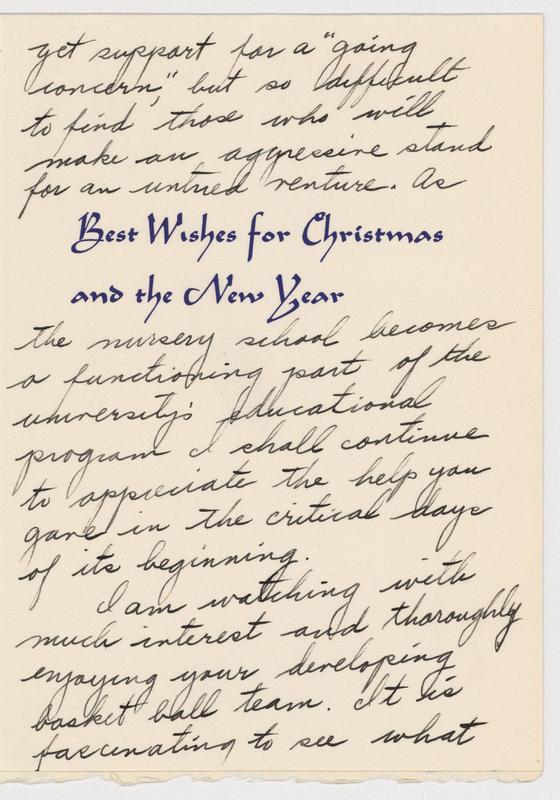 yet support for a "going
concern," but so difficult
to find those who will
make an aggressive stand
for an untried venture. As
Best Wishes for Christmas
and the New Year
the nursery school becomes
a functioning part of the
university's educational
program I shall continue
to appreciate the help you
gave in the critical days
of its beginning.
I am watching with
much interest and thoroughly
enjoying your developing
basket ball team. It is
fascinating to see what